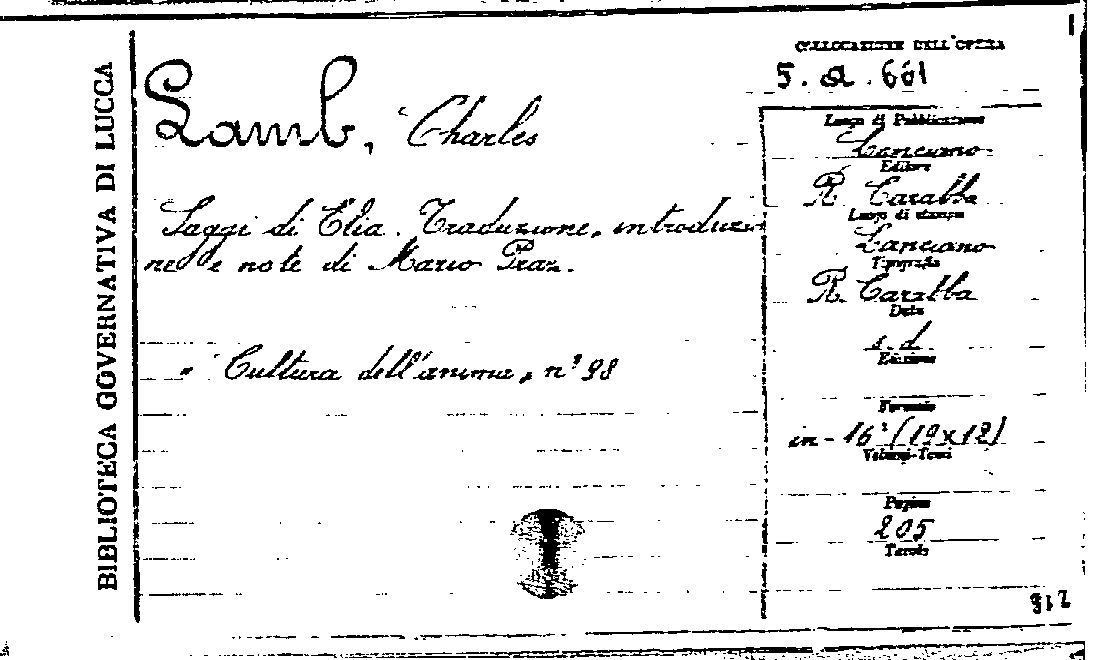 BIBLIOTECA GOVERNATIVA DI LUCCA
COLLOCAZIONE DELL'OPERA
5. a. 661
Lamb, Charles
Saggi di Elia. Traduzione, introduzio
ne e note di Mario Praz.
" Cultura dell'anima „ n° 98
Luogo di Pubblicazione
Lanciano
Editore
R. Carabba
Luogo di stampa
Lanciano
Tipografia
R. Carabba
Data
s. d.
Edizione
Formato
in - 16° (19x12)
Volumi-Tomi
Pagine
205
Tavole